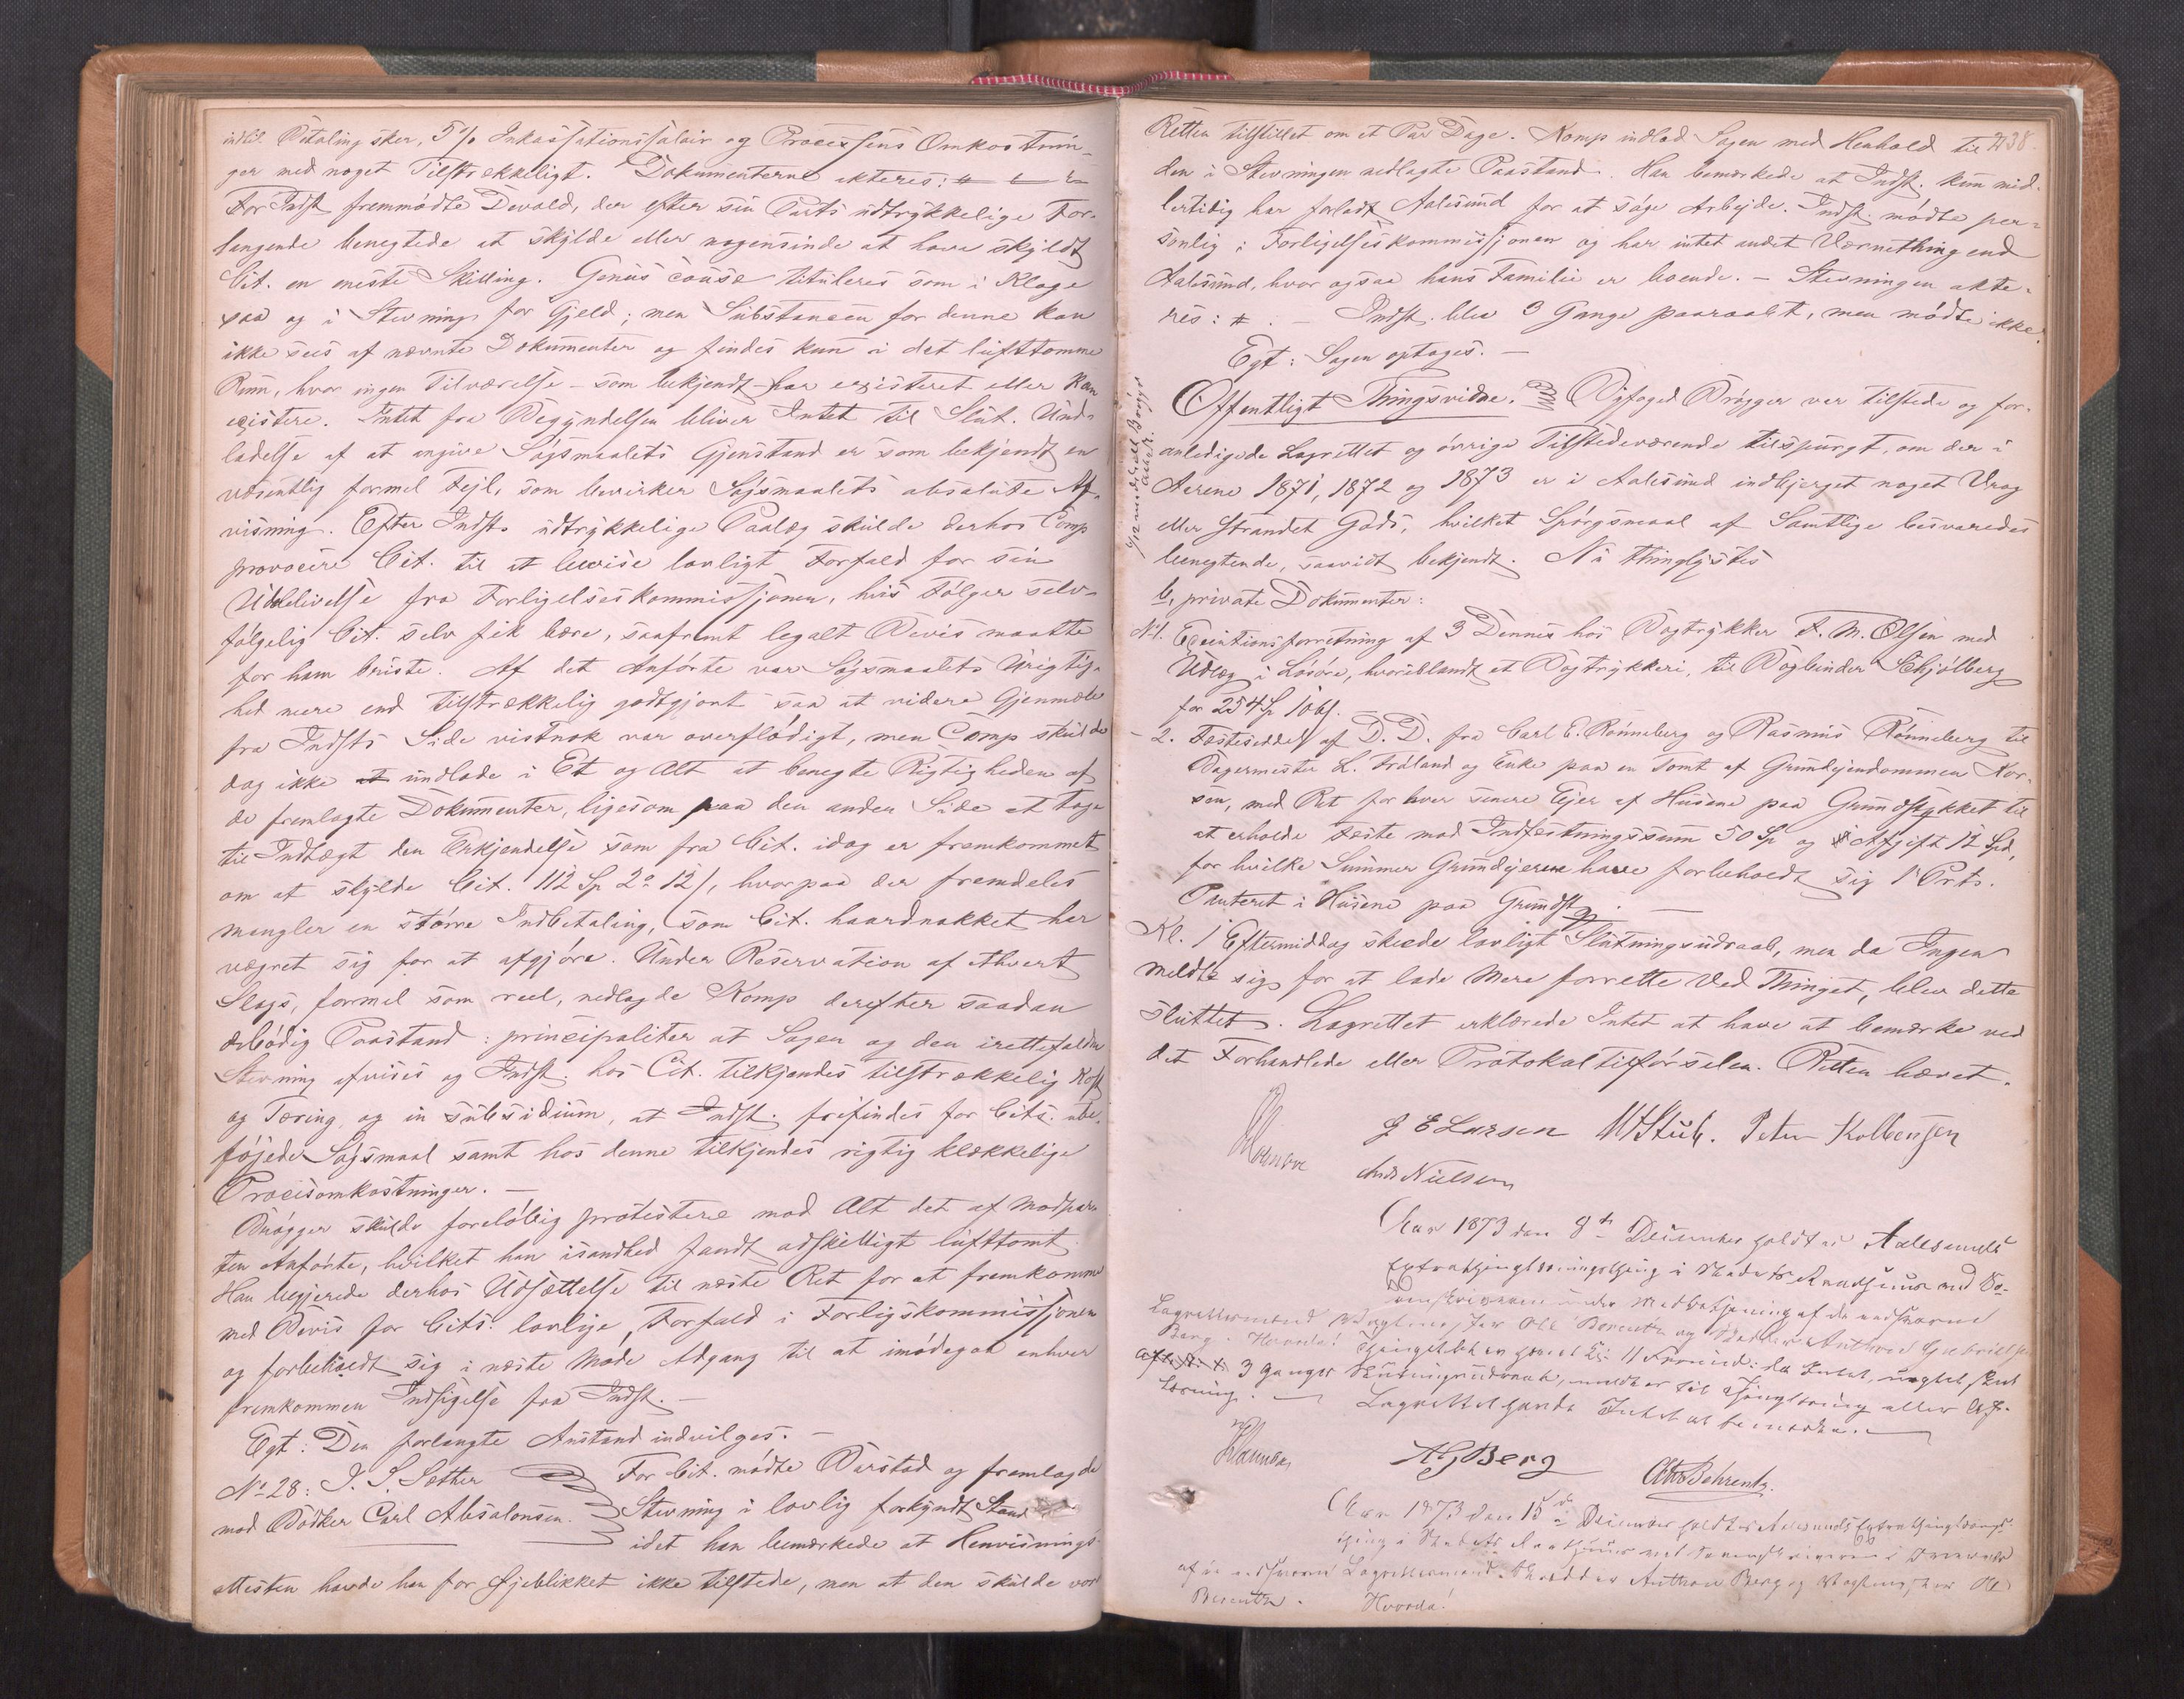 indtil Betaling sker, 5 % Inkassationssalair og Processens Omkostnin-
ger med noget Tilstrækkeligt. Dokumenterne akteres:
For Indst fremmødte Devold, der efter sin Parts udtrykkelige For-
langende benegtede at skylde eller nogensinde at have skyldt
Cit. en eneste Skilling. Genus causæ tituleres som i Klage
saa og i Stevning for Gjeld; men Substancen for denne kan
ikke sees af nævnte Dokumenter og findes kun i det lufttomme
Rum, hvor ingen Tilværelse - som bekjendt - har existeret eller kan
existere. Intet fra Begyndelsen bliver Intet til Slut. Und-
ladelse af at angive Søgsmaalets Gjenstand er som bekjendt en
væsentlig formel Fejl, som bevirker Søgsmaalets absolute Af-
visning. Efter Indsts udtrykkelige Paalæg skulde derhos Comp
provocere Cit. til at bevise lovligt Forfald for sin
Udeblivelse fra Forligelseskommissjonen, hvis Følger selv-
følgelig Cit. selv fik bære, saafremt legalt Bevis maatte
for ham briste. Af det Anførte var Søgsmaalets Urigtig-
hed mere end tilstrækkelig godtgjort saa at videre Gjenmæle
fra Indsts Side vistnok var overflødigt, men Comp skulde
dog ikke at undlade i Et og Alt at benegte Rigtigheden af
de fremlagte Dokumenter, ligesom paa den anden Side at tage
til Indtægt den Erkjendelse som fra Cit. idag er fremkommet
om at skylde Cit. 112 Sp 2 12 /, hvorpaa der fremdeles
mangler en større Indbetaling, som Cit. haardnakket har
vægret sig for at afgjøre. Under Reservation af ethvert
Slags, formel som reel, nedlagde Komp derefter saadan
ærbødig Paastand: principaliter at Sagen og den irettefaldne
Stevning afvises og Indst. hos Cit. tilkjendes tilstrækkelig Kost
og Tæring, og in subsidium, at Indst. frifindes for Cits. ube-
føjede Søgsmaal samt hos denne tilkjendes rigtig klækkelige
Procesomkostninger. -
Brøgger skulde foreløbig protestere mod Alt det af Modpar-
ten Anførte, hvilket han isandhed fandt adskilligt lufttomt.
Han begjerede derhos Udsættelse til næste Ret for at fremkomme
med Bevis for Cits. lovlige Forfald i Forligskommissjonen
og forbeholdt sig i næste Møde Adgang til at imødegaa enhver
fremkommen Indsigelse fra Indst. -
Egt: Den forlangte Anstand indvilges. -
No 28: J. S. Sether
mod Bødker Carl Absalonsen.
For Cit. mødte Barstad og fremlagde
Stevning i lovlig forkyndt Stand
idet han bemærkede at Henvisnings-
attesten havde han for Øjeblikket ikke tilstede, men at den skulde vorde
238.
Retten tilstillet om et Par Dage. Komp indlod Sagen med Henhold til
den i Stevningen nedlagte Paastand. Han bemærkede at Indst. kun mid-
lertidig har forladt Aalesund for at søge Arbejde. Indst. mødte per-
sonlig i Forligelseskommissjonen og har intet andet Værnething end
Aalesund, hvor ogsaa hans Familie er boende. - Stevningen akte-
res: - Indst. blev 3 Gange paaraabt, men mødte ikke.
Egt: Sagen optages. -
Offentligt Thingsvidne. Byfoged Brøgger var tilstede og for-
anledigede Lagrettet og øvrige Tilstedeværende tilspurgt, om der i
Aarene 1871, 1872 og 1873 er i Aalesund indbjerget noget Vrag
eller strandet Gods, hvilket Spørgsmaal af Samtlige besvaredes
benegtende, saavidt bekjendt. Nu thinglystes
b, private Dokumenter:
No 1. Executionsforretning af 3 Dennes hos Bogtrykker F. M. Olsen med
Udlæg i Løsøre, hvoriblandt et Bogtrykkeri, til Bogbinder Schjølberg
for 254 Sp 106 /.
- 2. Festeseddel af D. D. fra Carl E. Rønneberg og Rasmus Rønneberg til
Bagermester L. Frøland og Enke paa en Tomt af Grundejendommen Kor-
sen, med Ret for hver senere Ejer af Husene paa Grundstykket til
at erholde Feste mod Indfestningssum 50 Sp og Afgift 12 Spd,
for hvilke Summer Grundejerne have forbeholdt sig 1 Prts.
Panteret i Husene paa Grundst
Kl. 1 Eftermiddag skede lovligt Slutningsudraab, men da Ingen
meldte sig for at lade Mere forrette ved Thinget, blev dette
sluttet. Lagrettet erklærede Intet at have at bemærke ved
det Forhandlede eller Protokoltilførselen. Retten hævet.
J E Larsen M Stub. Peter Kolbensen
Ands Nielsen
Aar 1873 den 8de December holdtes Aalesunds
Extrathinglæsningsthing i Stadets Raadhuus med So-
renskriveren under Medbetjening af de edsvorne
Lagrettesmænd
Berg. Hvorda! Thinget
3 Gange Slutningsudraab, meldtes til Thinglæsning eller Af-
læsning. - Lagrettet havde Intet at bemærke. -
Berg Otto Behrentz.
Aar 1873 den 15de December holdtes Aalesunds Extrathinglæsnings-
thing i Stadets Raadhuus med Sorenskriveren i Overvær
af de edsvorne Lagrettesmænd Anthon Berg og
Hvorda!